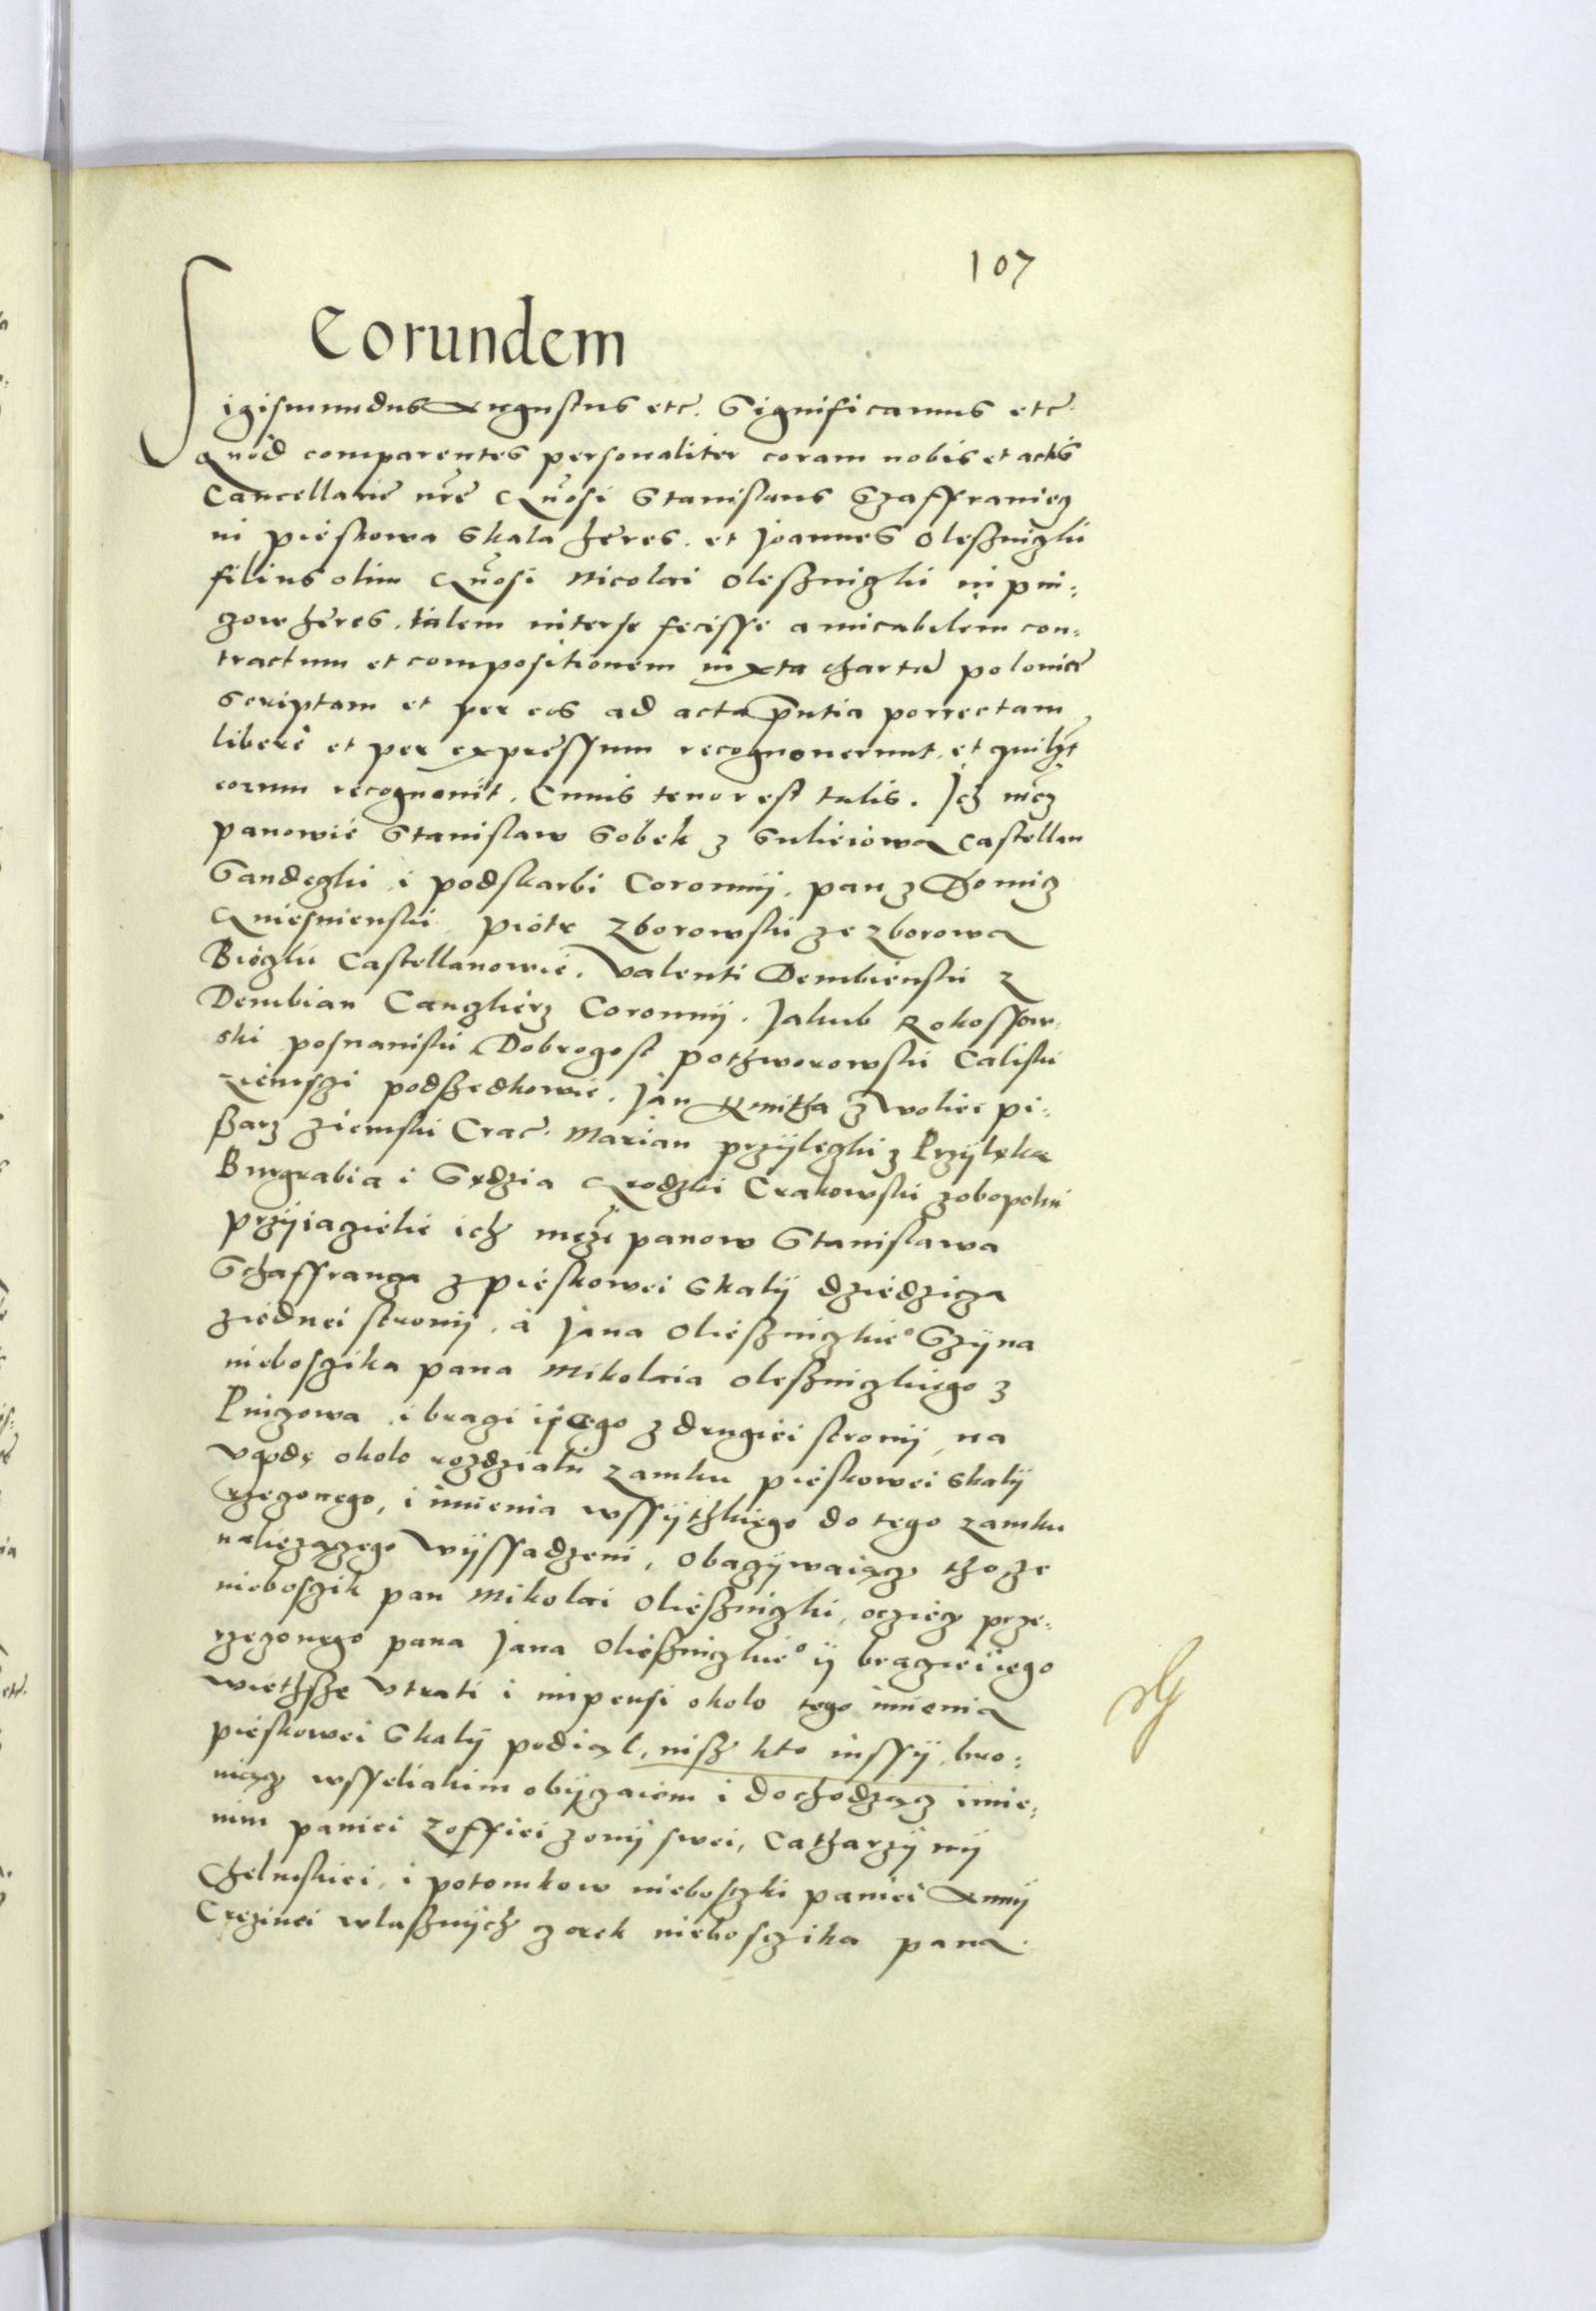 107
Eorundem
Sigismundus Augustus etc. Significamus etc.
Quod comparentes personaliter coram nobis et actis
Cancellarie nrẽ Gñosi Stanislaus Szaffraniecz
in pieskowa Skala heres. et Joannes Oleßniczki
filius olim Gñosi Nicolai Oleßniczki in pin:
czow heres. talem inter se fecisse amicabilem con:
tractum et compositionem iuxta chartã polonice
scriptam et per eos ad acta pñtia porrectam
libere et per expressum recognouerunt. et quilibet
eorum recognouit. Cuius tenor est talis. Ich mcz
panowie Stanislaw Sobek z Sulieiowa Castellan
Sandeczki i podskarbi Coronnij. pan z Domicz
Gniesnienski piotr Zborowski ze Zborowa
Bieczki Castellanowie. Valenti Dembienski z
Dembian Canczlierz Coronnij. Jakub Rokossow
ski posnanski Dobrogost pothworowski Caliski
ziemsczi podßedkowie. Jan Kmitha z Woliee pi:
ßarz ziemski Crac. Marian przijleczki z Przijlęka
Burgrabia i Sędzia Grodzki Crakowski zobopolni
przijiaczielie ich mcze panow Stanislawa
Schaffrancza z pieskowei Skalij dziedzicza
ziednei stronij. a Jana Oließniczkie° Szijna
nieboszika pana Mikolaia Oleßniczkiego z
Pinczowa, i braczi ijego z drugiei stronij, na
vgodę okolo rozdzialu zamku pieskowei skalij
rzeczonego, i imienia wssijthkiego do tego zamku
naliezączego wijssadzeni, obaczijwaiącz thoze
nieboszik pan Mikolai Oließniczki, oczięcz prze:
rzeczonego pana Jana Oließniczkie° ij bracziei iego
wiethsze vtrati i impensi okolo tego imienia
pieskowei Skalij podiąl, nisz kto inssij, bro:
niącz wsseliakim obijczaiem i dochodzącz imie:
nim paniei Zoffiei zonij swei, Catharzijnij
Chelmskiei, i potomkow nieboszki paniei Annij
własznijch czorek nieboszika pana